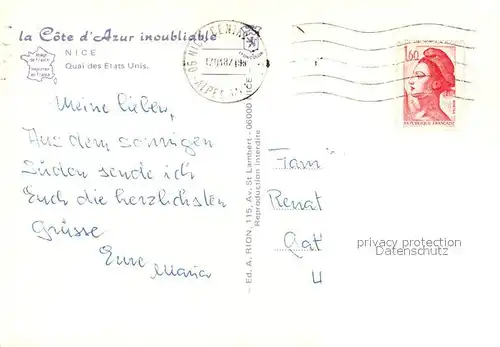 la Côte d'Azur inoubliable
NICE
Quai des Etats Unis.
Image
de France
imprimée
en France
06 NICE CENTRE
ALPES
1.60
REPUBLIQUE FRANÇAISE
Meine lieben,
Aus dem sonnigen
Süden sende ich
Euch die herzlichsten
Grüsse
Eure
Maria
Ed. A. RION, 115, Av. St Lambert - 06000 NICE
Reproduction interdite
Fam
Renat
Gat
4
privacy protection
Datenschutz